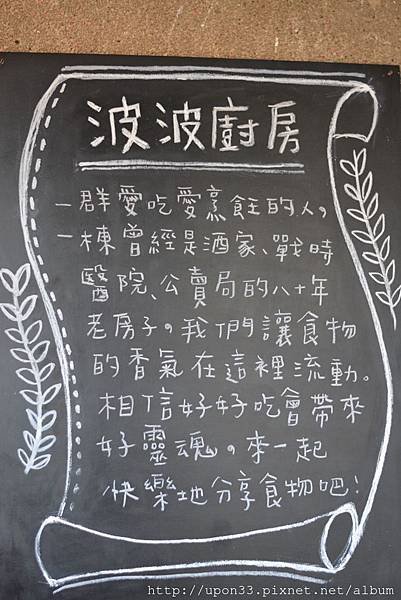 波波廚房
一群愛吃愛烹飪的人。
一棟曾經是酒家、戰時
醫院、公賣局的八十年
老房子。我們讓食物
的香氣在這裡流動。
相信好好吃會帶來
好靈魂。來一起
快樂地分享食物吧!
http://upon33.pixnet.net/album